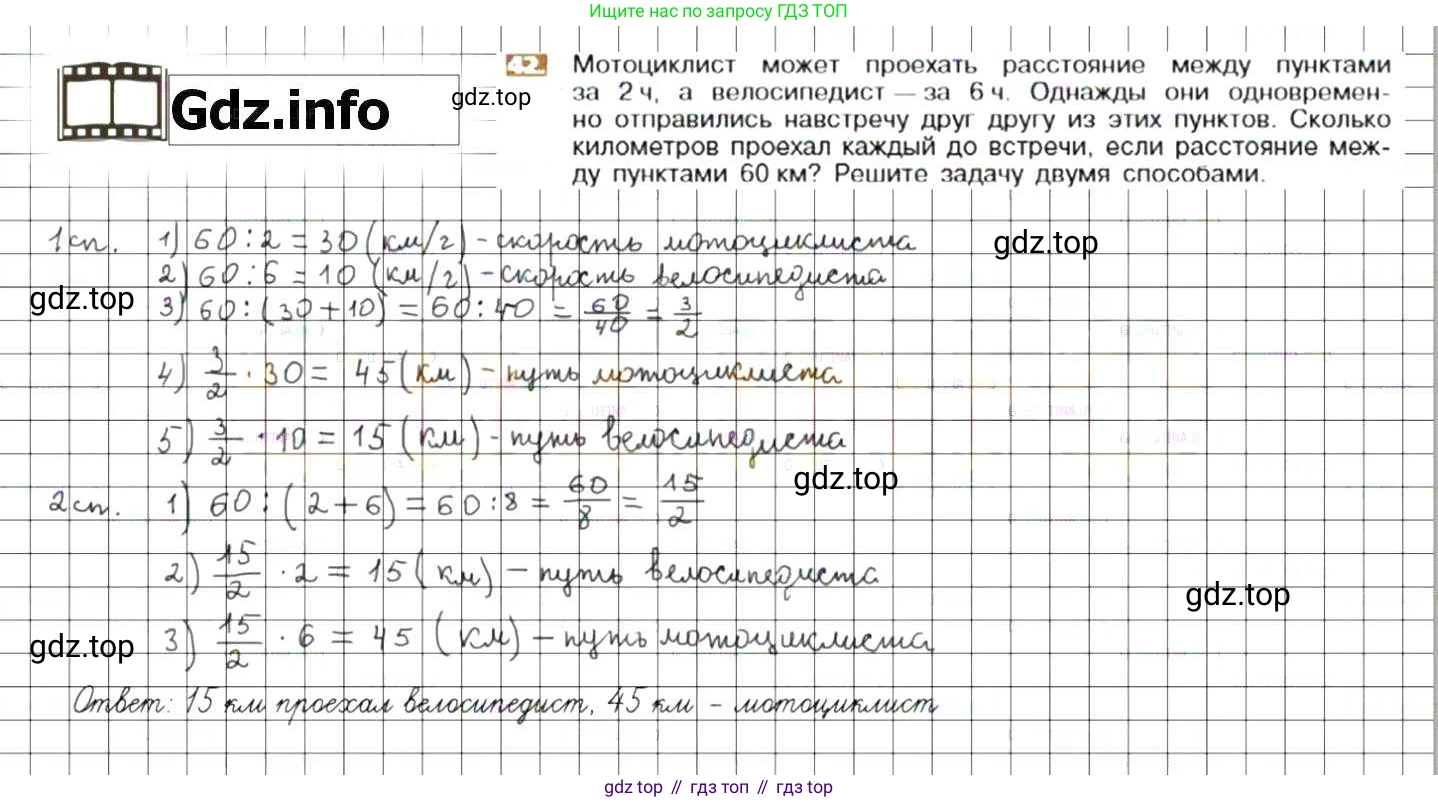 Ищите нас по запросу ГДЗ ТОП
Gdz.info
gdz.top
42 Мотоциклист может проехать расстояние между пунктами
за 2 ч, а велосипедист — за 6 ч. Однажды они одновремен-
но отправились навстречу друг другу из этих пунктов. Сколько
километров проехал каждый до встречи, если расстояние меж-
ду пунктами 60 км? Решите задачу двумя способами.
1 сп. 1) 60 : 2 = 30 (км/г) - скорость мотоциклиста
gdz.top
2) 60 : 6 = 10 (км/г) - скорость велосипедиста
gdz.top
3) 60 : (30 + 10) = 60 : 40 = 60/40 = 3/2
4) 3/2 · 30 = 45 (км) - путь мотоциклиста
5) 3/2 · 10 = 15 (км) - путь велосипедиста
gdz.top
2 сп. 1) 60 : (2 + 6) = 60 : 8 = 60/8 = 15/2
2) 15/2 · 2 = 15 (км) - путь велосипедиста
gdz.top
3) 15/2 · 6 = 45 (км) - путь мотоциклиста
gdz.top
Ответ: 15 км проехал велосипедист, 45 км - мотоциклист
gdz top // гдз топ // gdz top